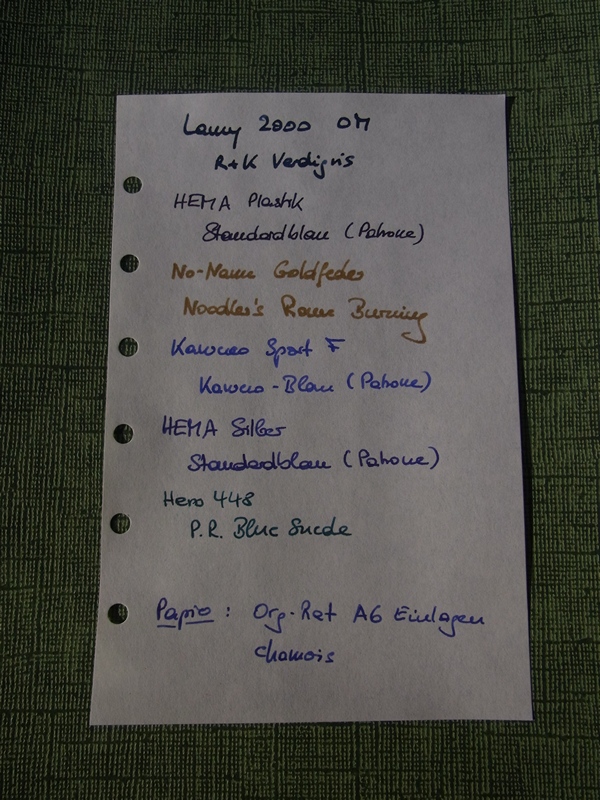 Lamy 2000 OM
R+K Verdigris
HEMA Plastik
Standardblau (Patrone)
No-Name Goldfeder
Noodler's Rome Burning
Kaweco Sport F
Kaweco-Blau (Patrone)
HEMA Silber
Standardblau (Patrone)
Hero 448
P.R. Blue Suede
Papier: Org-Rat A6 Einlagen
chamois